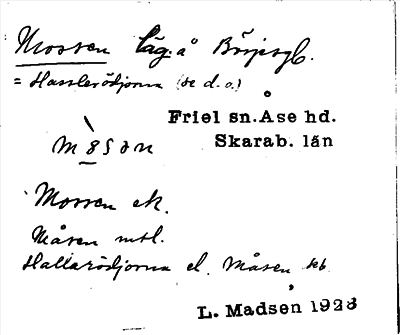 Mossen läg. å Börjesgb.
= Hasslerödjorna (se d. o.)
Friel sn. Åse hd.
Skarab. län
Mossen ek.
Måsen mtl.
Hallarödjorna el. Måsen kb
L. Madsen 1928